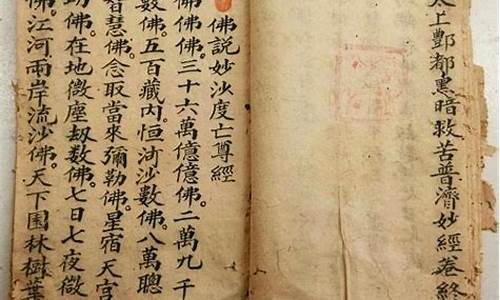 太上酆都黑暗救苦普濟妙經卷終
佛説妙沙度亡尊經
佛佛佛。三十六萬億億佛。二萬九千
數佛。五百藏内。恒河沙數佛。八萬聰
智慧佛。念取當來彌勒佛。星宿天宮
劫佛。在地微塵劫數佛。七日七夜微
佛。江河兩岸流沙佛。天下園林樹葉